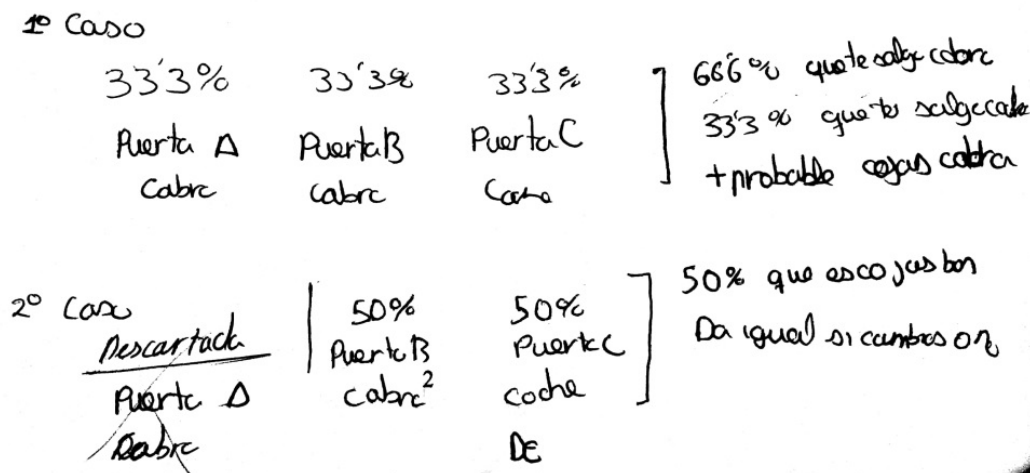 1º Caso
33'3% 33'3% 33'3%
Puerta A Puerta B Puerta C
Cabra cabra Coche
66'6% que te salga cabra
33'3% que te salga coche
+ probable cojas cabra
2º Caso
Descartada 50% 50%
Puerta A Puerta B Puerta C
Cabra cabra² coche
DE
50% que escojas bien
Da igual si cambias o no